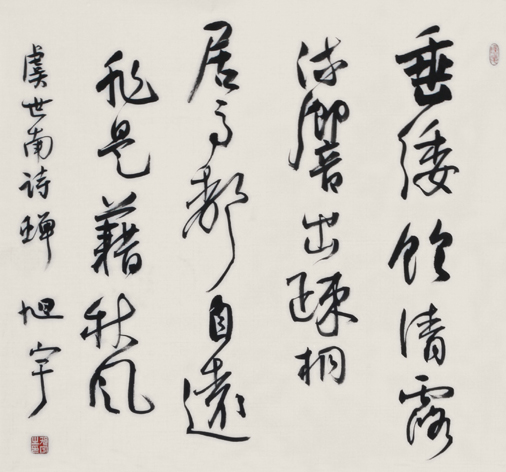 垂緌飲清露
流響出疎桐
居高聲自遠
非是藉秋風
虞世南詩蟬 旭宇